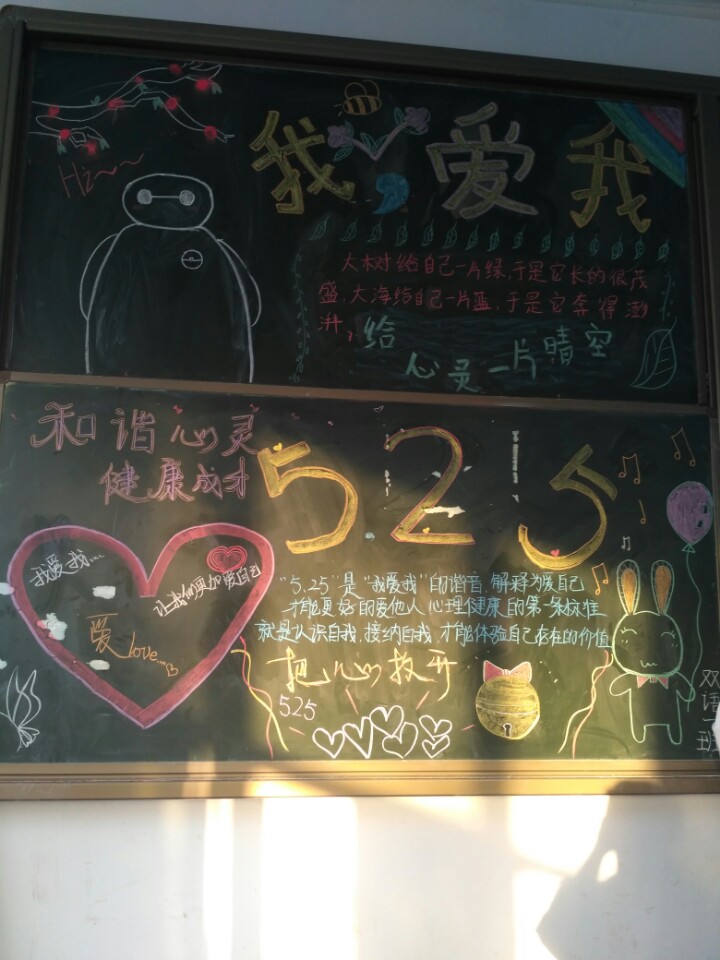 我爱我
Hi~~
大树给自己一片绿,于是它长的很茂
盛,大海给自己一片蓝,于是它奔得澎
湃,给
心灵一片晴空
和谐心灵
健康成才
525
我爱我...
让我们更加爱自己
爱love...
"5.25"是"我爱我"的谐音,解释为爱己
才能更好的爱他人心理健康的第一条标准
就是认识自我,接纳自我,才能体验自己存在的价值
把心放开
525
双语一班